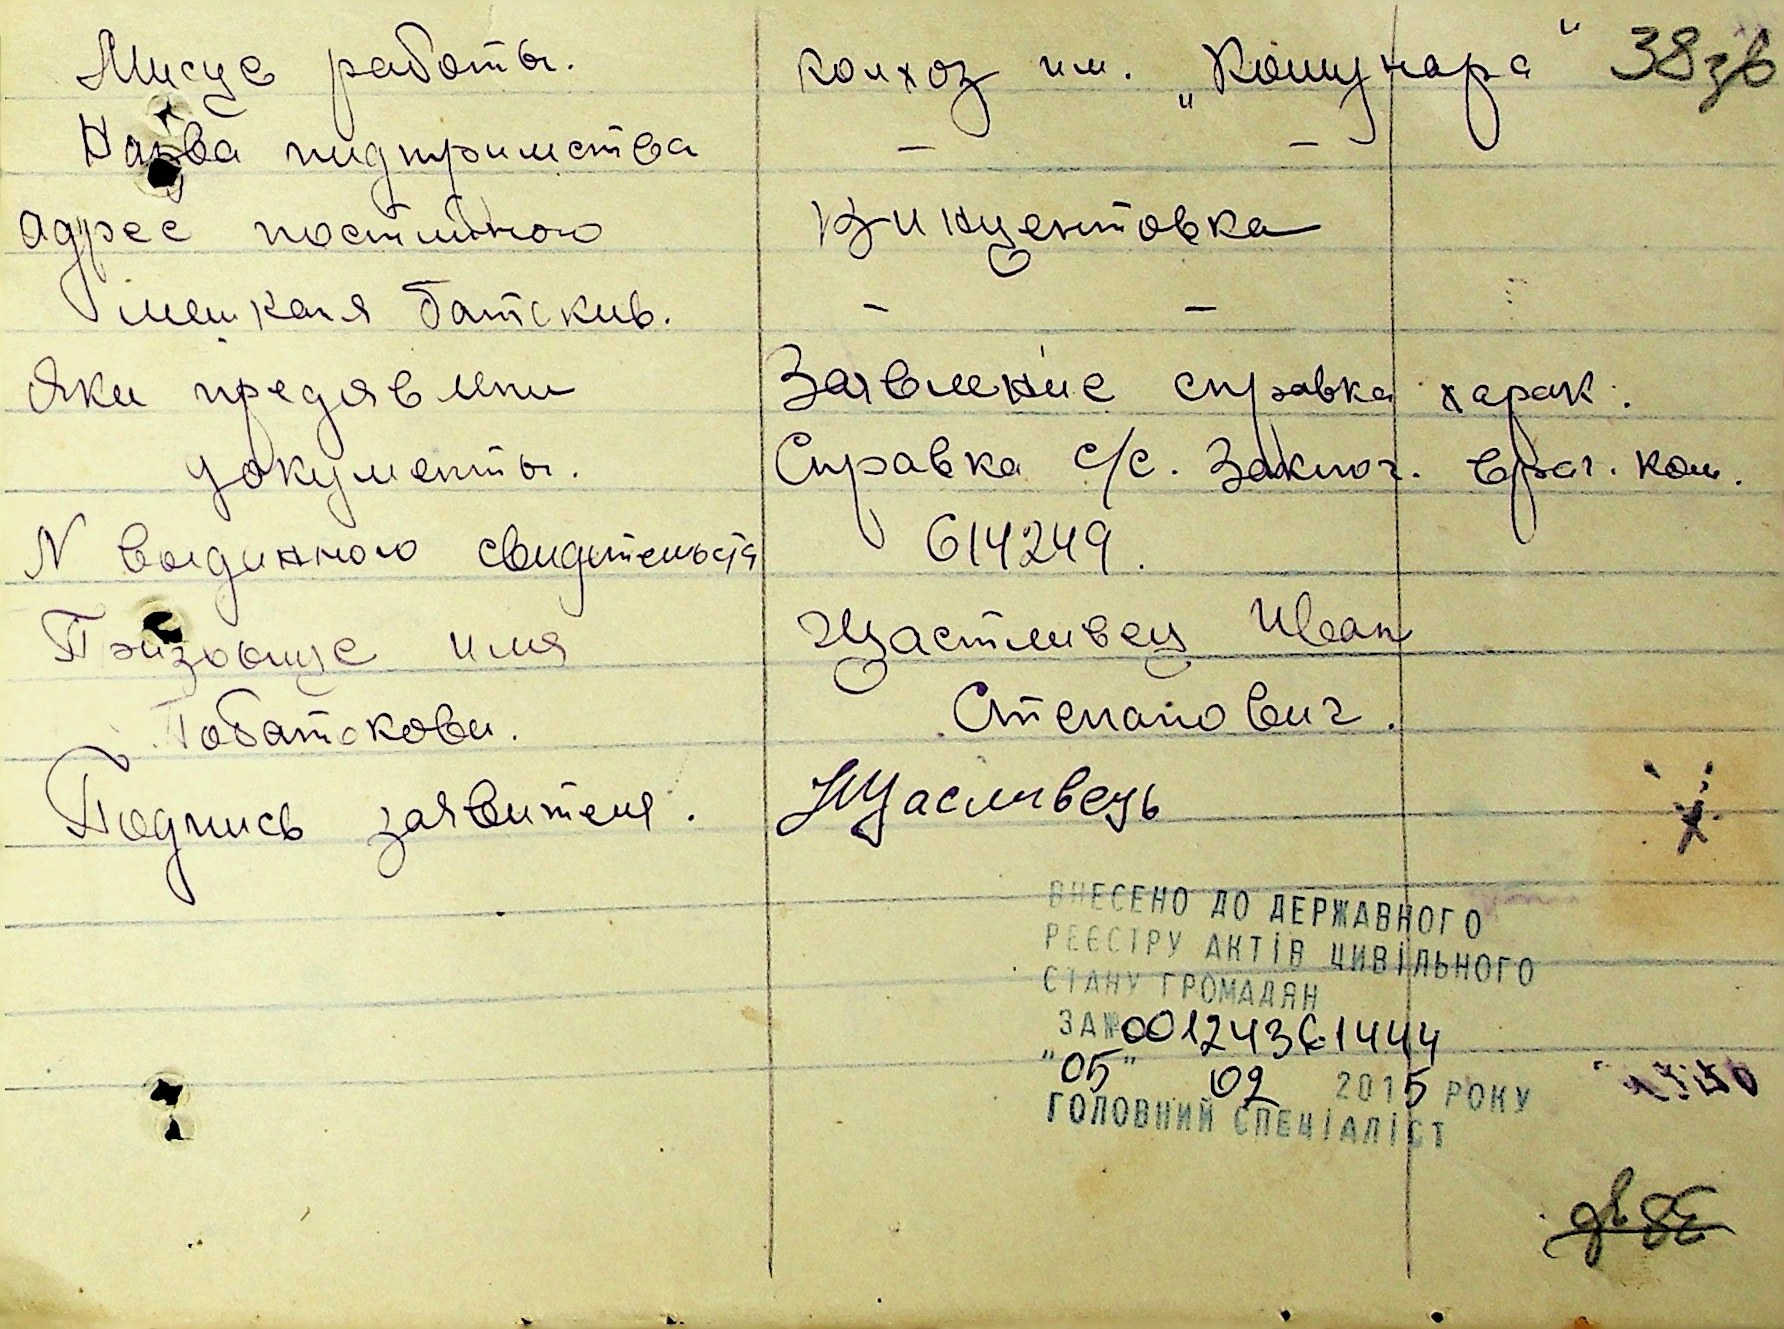 Мисце работы. колхоз им. „Комунара" 38зв
Назва пидпримства — —
Адрес постийного Винцентовка
мешкана батскив. — —
Яки предявлени Заявление справка харак.
документы. Справка с/с. Заключ. врач. ком.
N выдинного свидительств 614249.
Призвище имя Щастливец Иван
Побатскови. Степанович.
Подпись заявителя. Щасливець
ВНЕСЕНО ДО ДЕРЖАВНОГО
РЕЄСТРУ АКТІВ ЦИВІЛЬНОГО
СТАНУ ГРОМАДЯН
ЗА № 00124361444
"05" 02 2015 РОКУ
ГОЛОВНИЙ СПЕЦІАЛІСТ
38зв